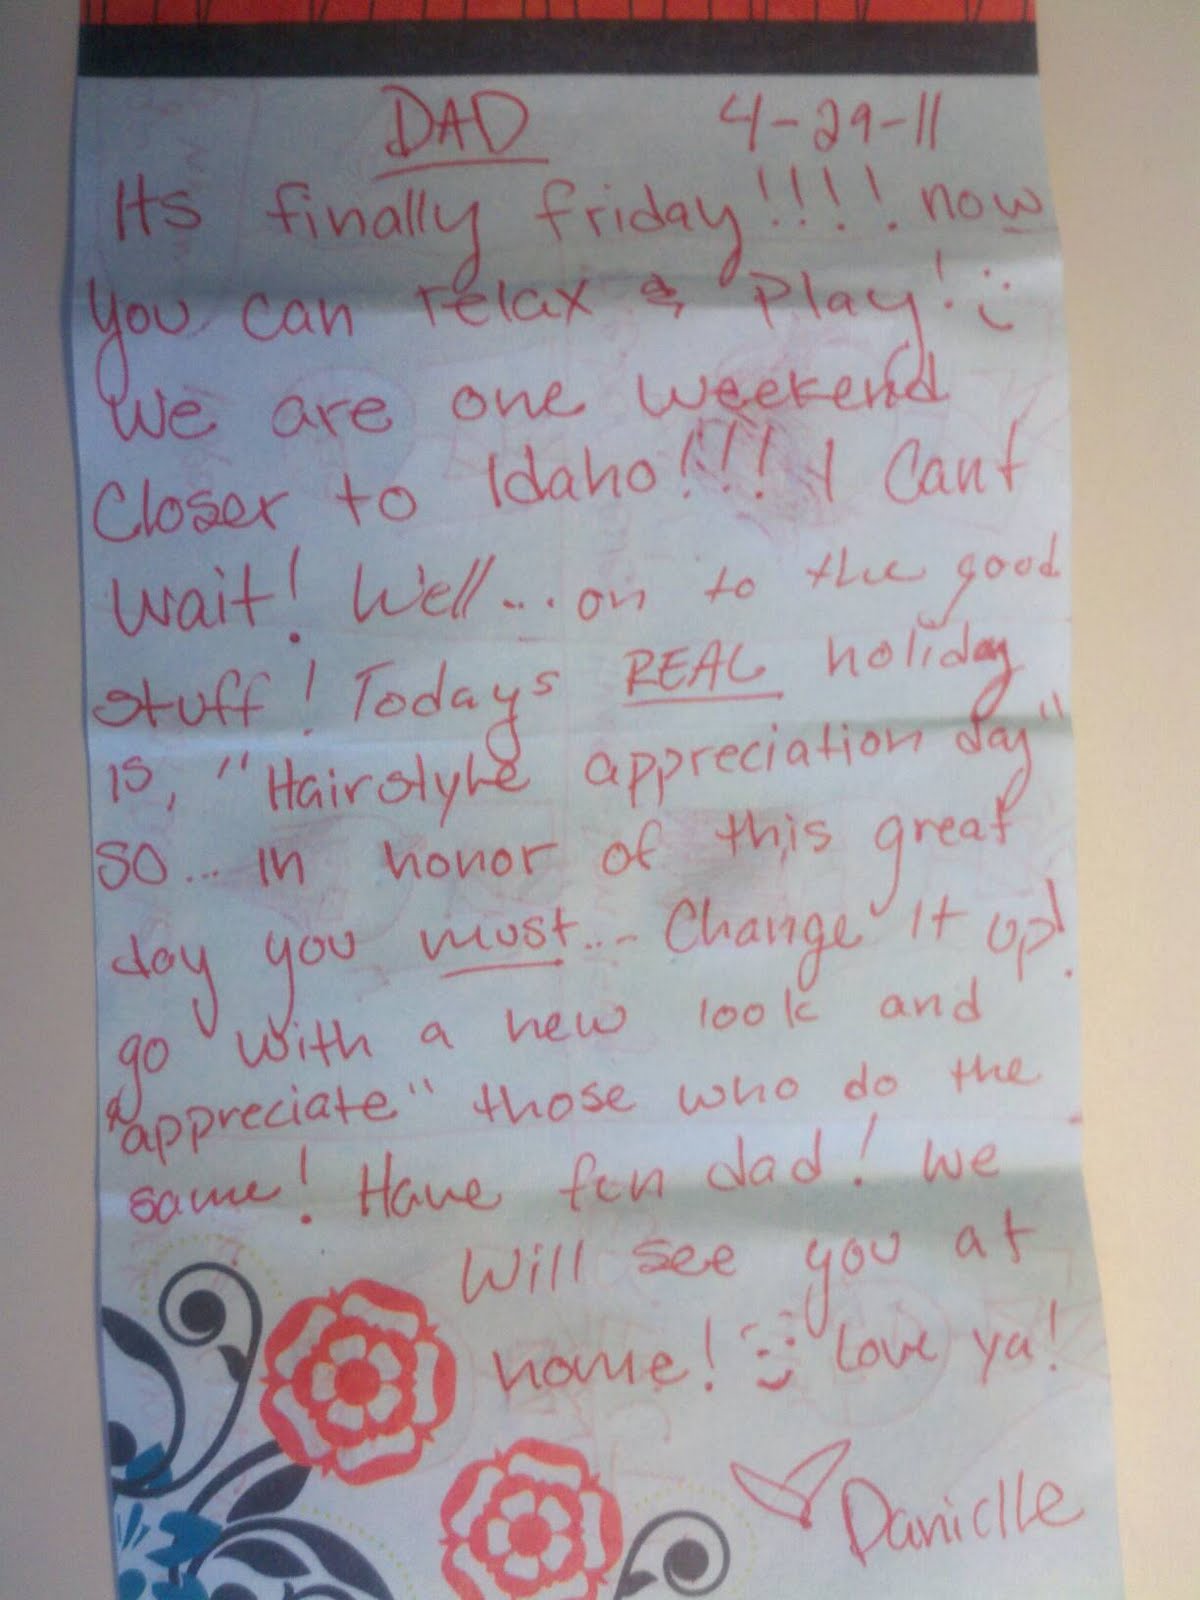 DAD 4-29-11
Its finally friday!!!! now
you can relax & play! :)
We are one weekend
closer to Idaho!!! I cant
wait! Well... on to the good
stuff! Todays REAL holiday
is, "Hairstyle appreciation day"
so... in honor of this great
day you must... Change it up!
go with a new look and
"appreciate" those who do the
same! Have fun dad! we
will see you at
home! :) Love ya!
Danielle